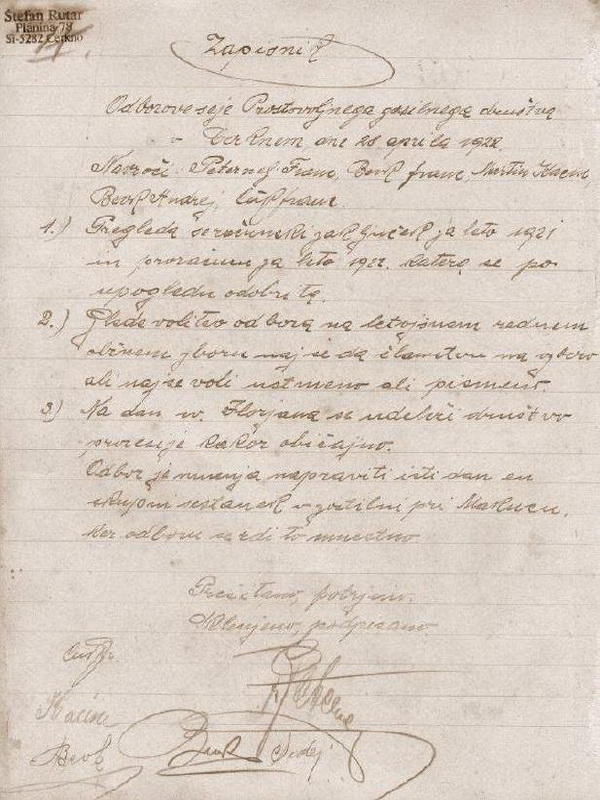 Štefan Rutar
Planina 78
SI-5282 Cerkno
Zapisnik
Odborove seje Prostovoljnega gasilnega društva
v Cerknem dne 28 aprila 1922
Navzoči: Peternel Franc, Bevk franc, Martin Kacin,
Bevk Andrej, franc
1.) Pregleda se računski zaključek za leto 1921
in proračun za leto 1922. katera se po
vpogledu odobrita.
2.) Glede volitev odbora na letošnjem rednem
občnem zboru naj se da članstvu na izbiro
ali naj se voli ustmeno ali pismeno.
3.) Na dan sv. Florjana se udeleži društvo
procesije kakor običajno.
Odbor je mnenja napraviti isti dan en
skupni sestanek v gostilni pri
ker odboru se zdi to umestno
Prečitano, potrjeno.
Sklenjeno, podpisano
Kacin
Bevk
Bevk Andrej